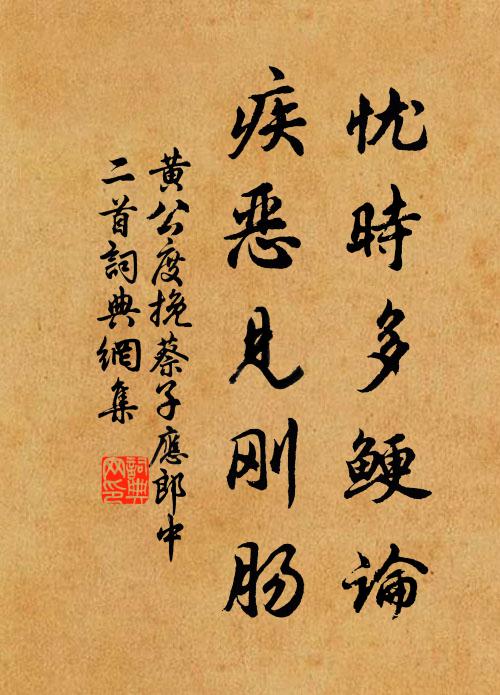 忧時多鲠論
疾恶见刚肠
黄公度挽蔡子應郎中
二首詞典網集
詞典
网印